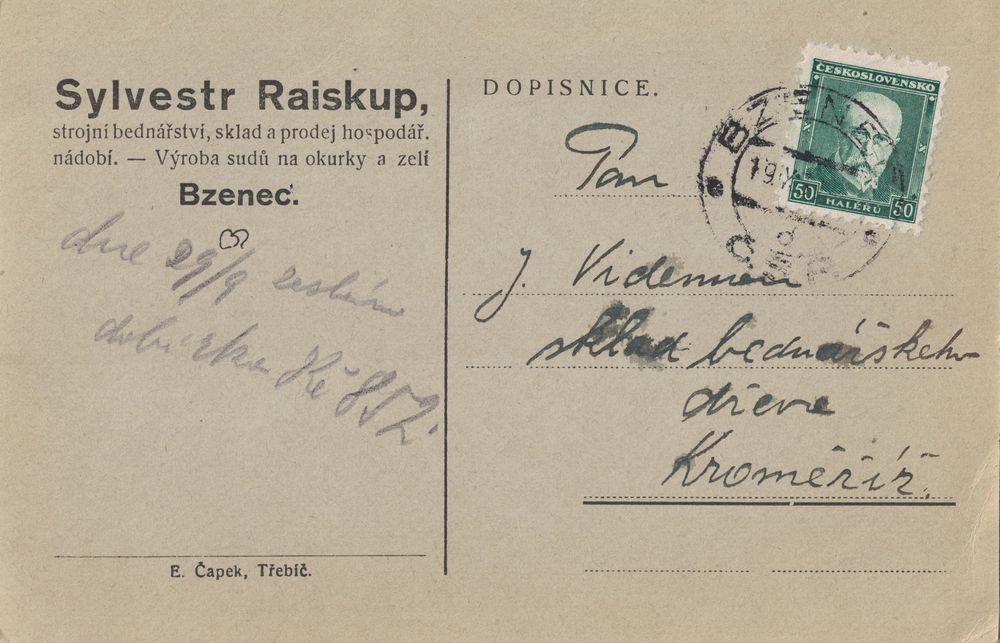 Sylvestr Raiskup,
strojní bednářství, sklad a prodej hospodář.
nádobí. — Výroba sudů na okurky a zelí
Bzenec.
dne 29/9
Kč 852
E. Čapek, Třebíč.
DOPISNICE.
ČESKOSLOVENSKO
50 HALÉŘŮ 50
BZENEC
ČSR
Pan
J.
sklad bednářského
dřeva
Kroměříž.